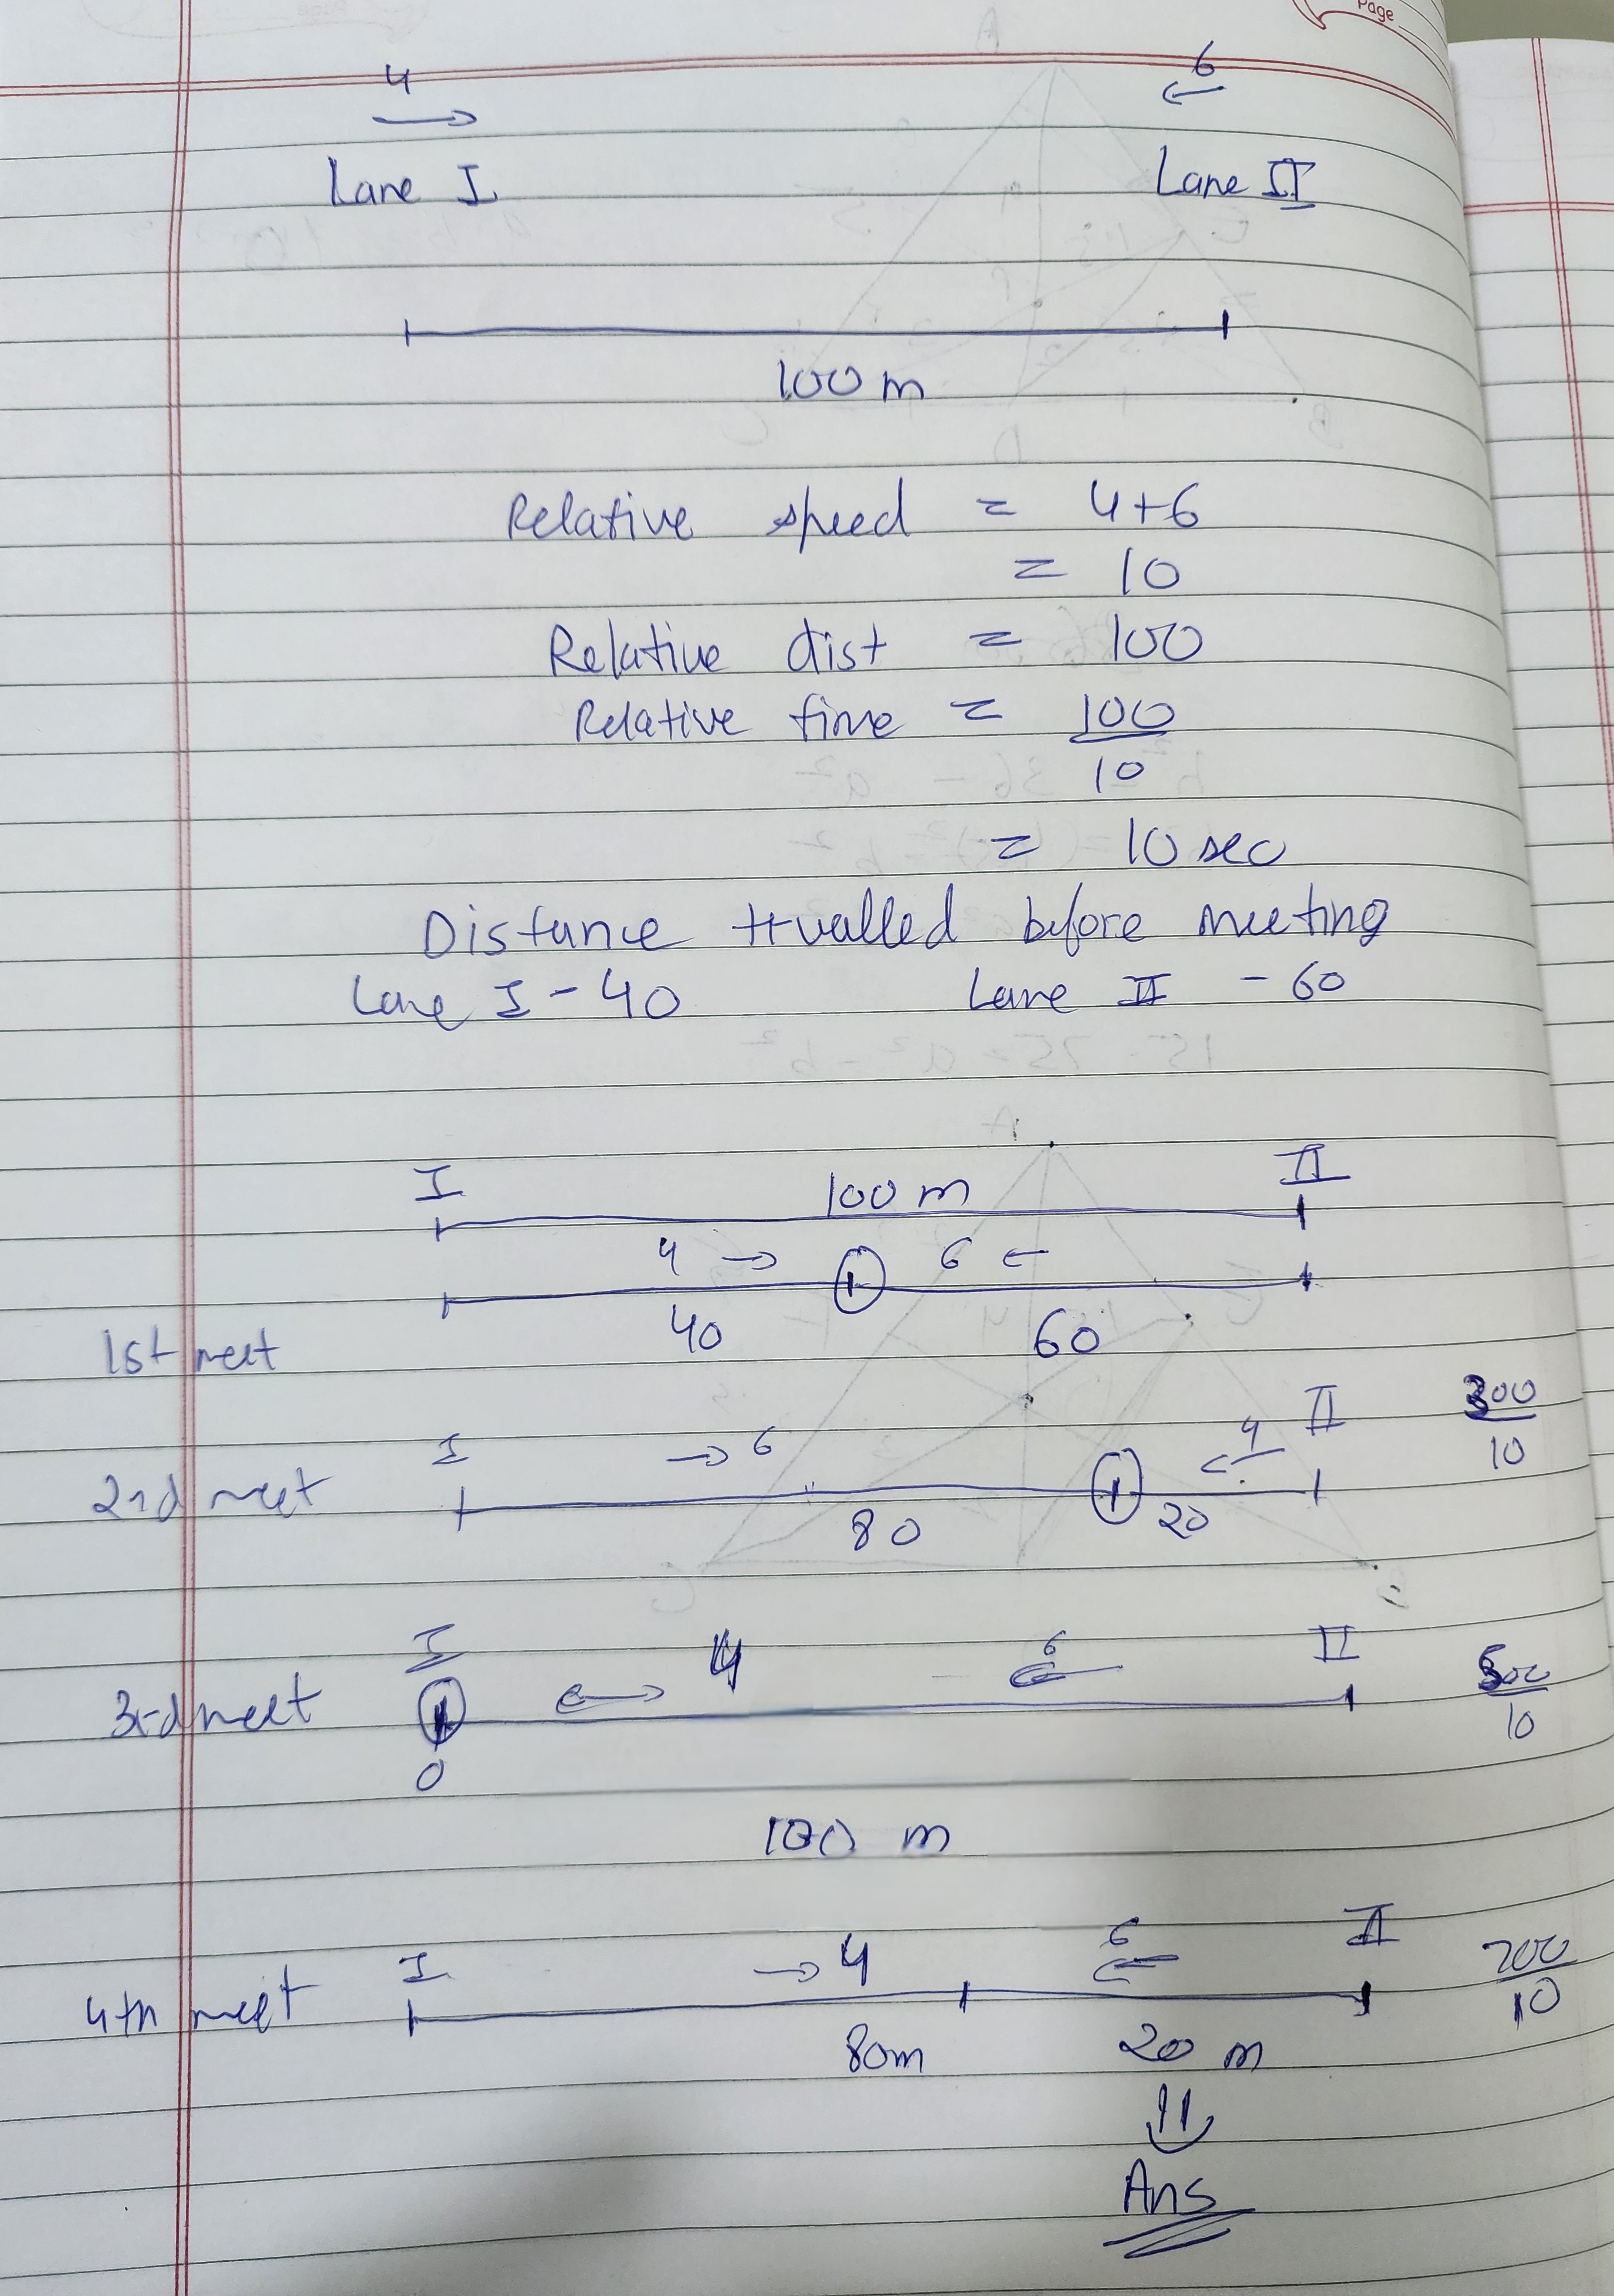 Page
4 6
→ ←
Lane I Lane II
100 m
Relative speed = 4+6
= 10
Relative dist = 100
Relative time = 100
10
= 10 sec
Distance trvalled before meeting
Lane I - 40 Lane II - 60
I 100 m II
4 → 6 ←
40 60
1st meet
I → 6 4 ← II 300
10
2nd meet
80 20
I 4 6 II 500
10
3rd meet
0
100 m
I → 4 6 ← II 700
10
4th meet
80m 20 m
Ans